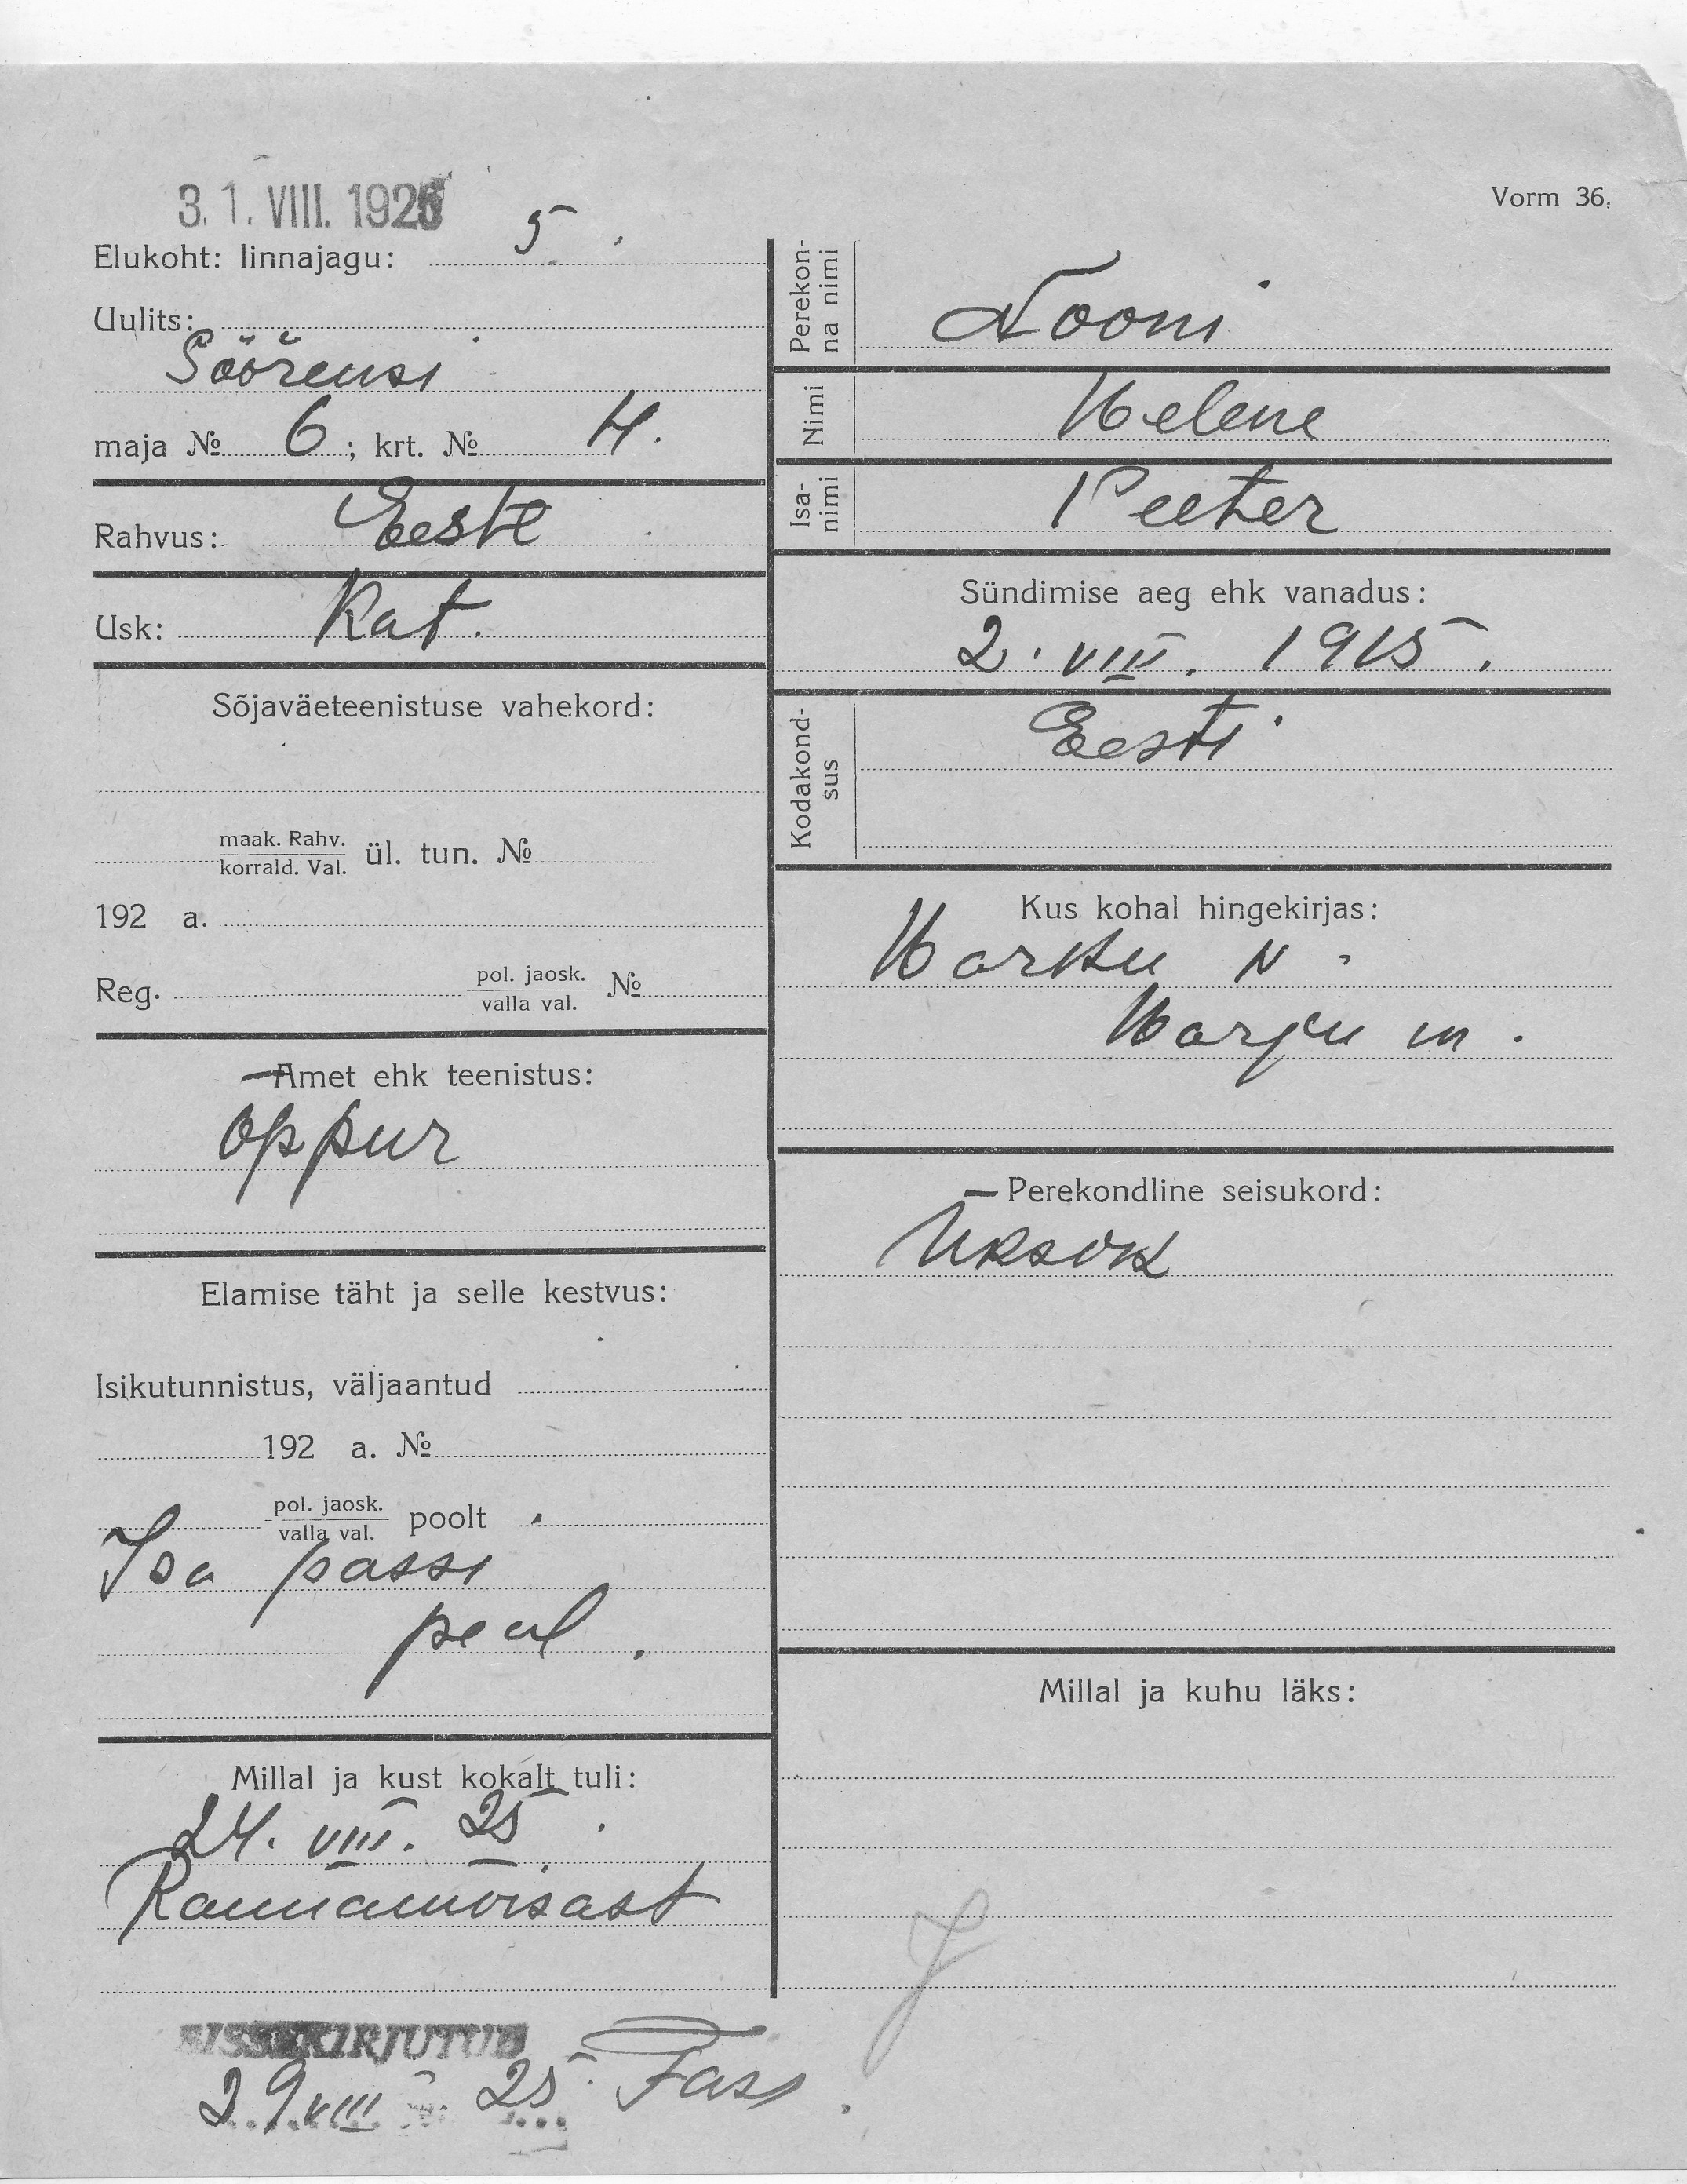 3 1. VIII. 1925
Vorm 36.
Elukoht: linnajagu: 5.
Uulits:
Söörensi
maja № 6; krt. № 4.
Rahvus: Eesti
Usk: Kat.
Sõjaväeteenistuse vahekord:
maak. Rahv.
korrald. Val. ül. tun. №
192 a.
Reg. pol. jaosk.
valla val. №
Amet ehk teenistus:
Oppur
Elamise täht ja selle kestvus:
Isikutunnistus, väljaantud
192 a. №
pol. jaosk.
valla val. poolt
Isa passi
peal.
Millal ja kust kokalt tuli:
24. VIII. 25.
Rannamoisast
SISSEKIRJUTUD
29 VIII 25.
Perekon-
na nimi
Nooni
Nimi
Helene
Isa-
nimi
Peeter
Sündimise aeg ehk vanadus:
2. VIII. 1915.
Kodakond-
sus
Eesti
Kus kohal hingekirjas:
Harku v.
Harju m.
Perekondline seisukord:
Üksik
Millal ja kuhu läks: